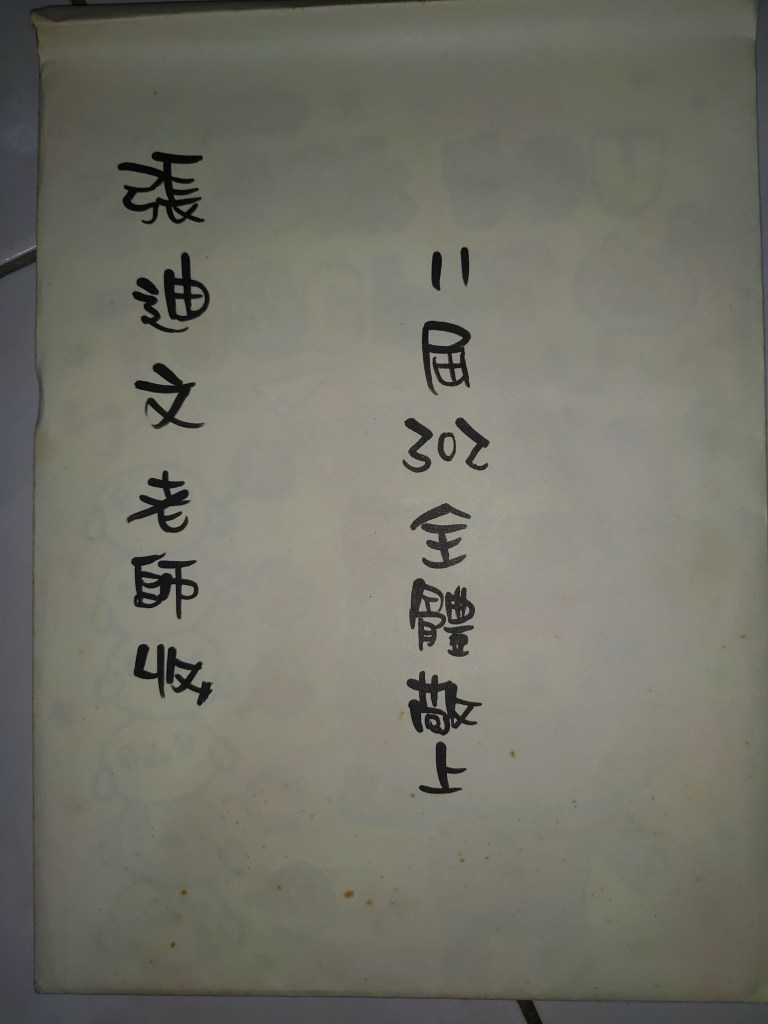 張迪文老師收
11屆302全體敬上